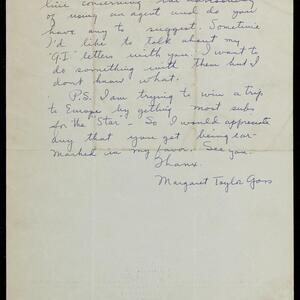 time concerning the advisability
of using an agent and do you
have any to suggest. Sometime
I'd like to talk about my
"G.I" letters with you. I want to
do something with them but I
don't know what.
P.S. I am trying to win a trip
to Europe by getting most subs
for the "Star" - So I would appreciate
any that you get being ear-
marked in my favor. See you.
Thanx.
Margaret Taylor Goss